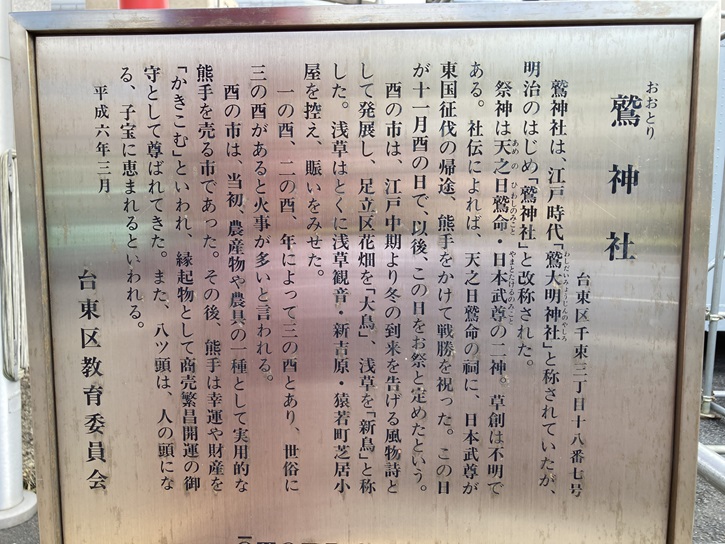 おおとり
鷲神社
台東区千束三丁目十八番七号
わしだいみょうじんのやしろ
鷲神社は、江戸時代「鷲大明神社」と称されていたが、
明治のはじめ「鷲神社」と改称された。
あめのひわしのみこと やまとたけるのみこと
祭神は天之日鷲命・日本武尊の二神。草創は不明で
ある。社伝によれば、天之日鷲命の祠に、日本武尊が
東国征伐の帰途、熊手をかけて戦勝を祝った。この日
が十一月酉の日で、以後、この日をお祭と定めたという。
酉の市は、江戸中期より冬の到来を告げる風物詩と
して発展し、足立区花畑を「大鳥」、浅草を「新鳥」と称
した。浅草はとくに浅草観音・新吉原・猿若町芝居小
屋を控え、賑いをみせた。
一の酉、二の酉、年によって三の酉とあり、世俗に
三の酉があると火事が多いと言われる。
酉の市は、当初、農産物や農具の一種として実用的な
熊手を売る市であった。その後、熊手は幸運や財産を
「かきこむ」といわれ、縁起物として商売繁昌開運の御
守として尊ばれてきた。また、八ツ頭は、人の頭にな
る、子宝に恵まれるといわれる。
平成六年三月
台東区教育委員会